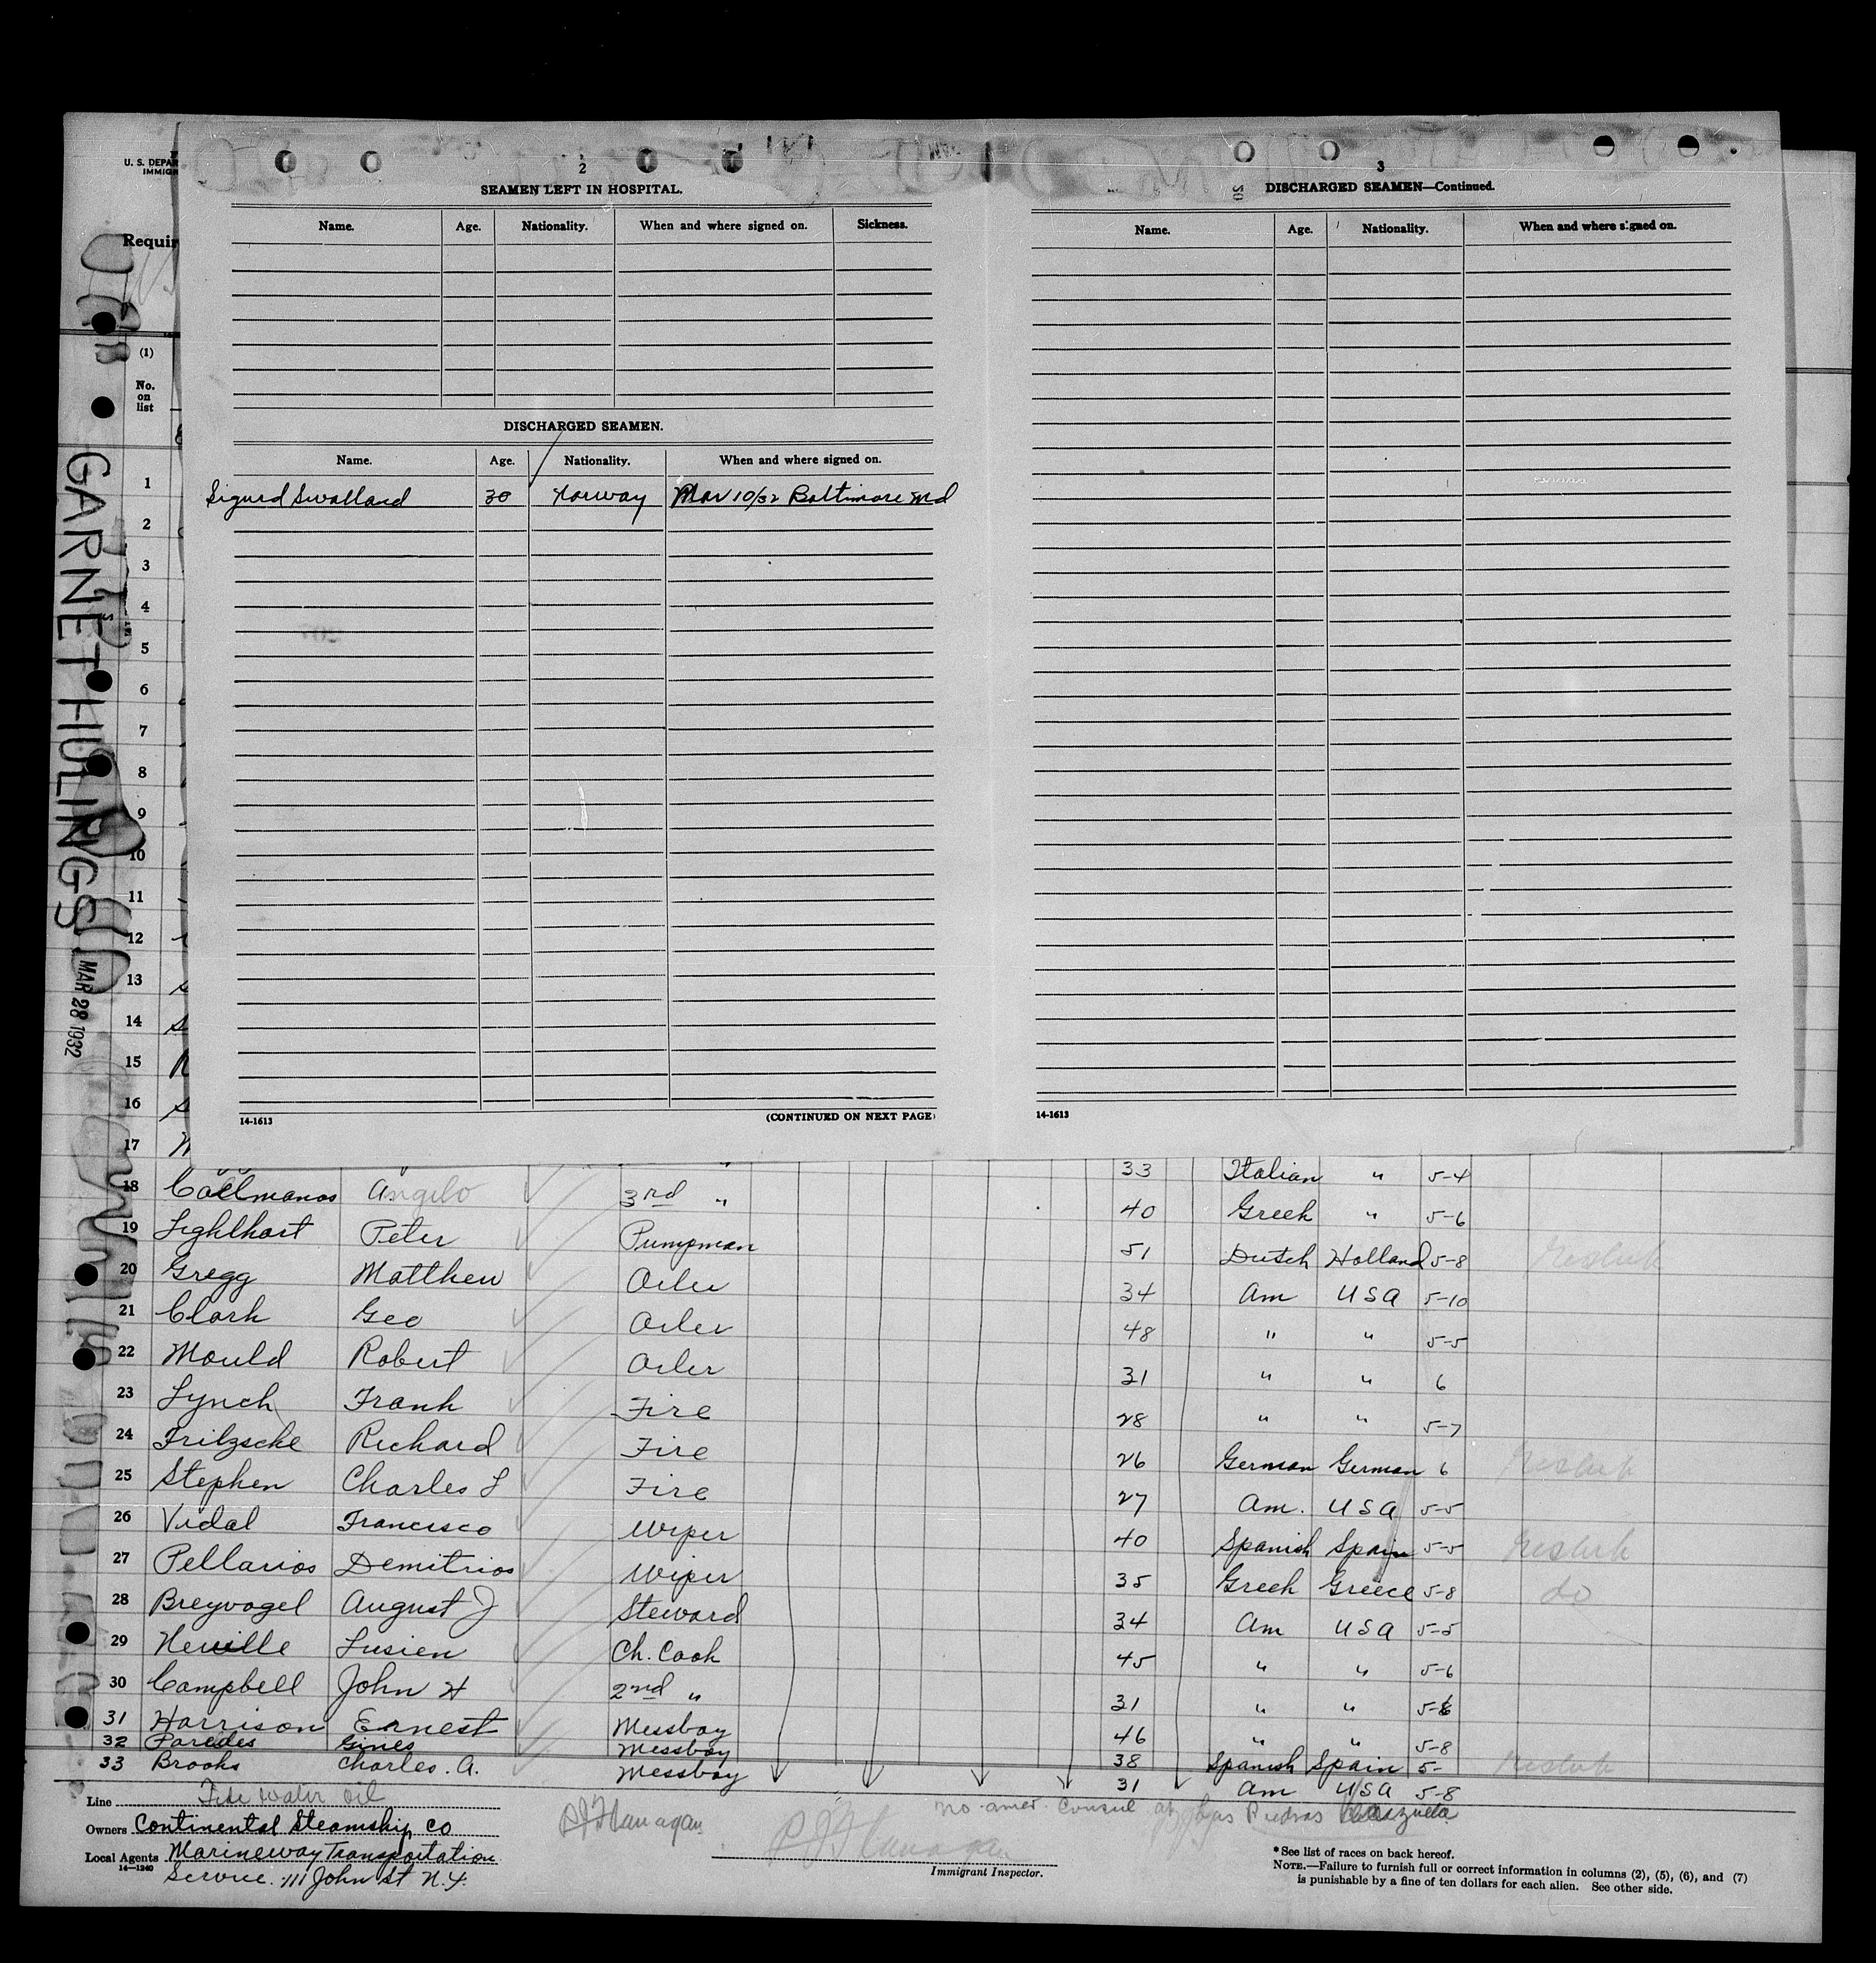 U. S. DEPAR
IMMIGR
Requir
(1)
No.
on
list
GARNET HULINGS
MAR 28 1932
2
SEAMEN LEFT IN HOSPITAL.
Name. Age. Nationality. When and where signed on. Sickness.
DISCHARGED SEAMEN.
Name. Age. Nationality. When and where signed on.
Sigurd Swalland 30 Norway Mar 10/32 Baltimore Md
14-1613 (CONTINUED ON NEXT PAGE)
3
DISCHARGED SEAMEN—Continued.
Name. Age. Nationality. When and where signed on.
14-1613
1
2
3
4
5
6
7
8
9
10
11
12
13
14
15
16
17 33 Italian " 5-4
18 Angelo 3rd " 40 Greek " 5-6
19 Lighlhart Peter Pumpman 51 Dutch Holland 5-8
20 Gregg Matthew Oiler 34 Am USA 5-10
21 Clark Geo Oiler 48 " " 5-5
22 Mould Robert Oiler 31 " " 6
23 Lynch Frank Fire 28 " " 5-7
24 Fritzsche Richard Fire 26 German German 6
25 Stephen Charles L Fire 27 Am. USA 5-5
26 Vidal Francisco Wiper 40 Spanish Spain 5-5
27 Pellarios Demitrios Wiper 35 Greek Greece 5-8 do
28 Breyvogel August J Steward 34 Am USA 5-5
29 Neville Lusien Ch. Cook 45 " " 5-6
30 Campbell John H 2nd " 31 " " 5-8
31 Harrison Ernest Messboy 46 " " 5-8
32 Paredes Gines Messboy 38 Spanish Spain 5-
33 Brooks Charles. A. Messboy 31 Am USA 5-8
Line Tide water oil
Owners Continental Steamship Co
Local Agents Marineway Transportation
14—1240
Service. 111 John St N.Y.
P J Flanagan
P J Flanagan
Immigrant Inspector.
No amer. Consul at Las Piedras Venezuela
* See list of races on back hereof.
NOTE.—Failure to furnish full or correct information in columns (2), (5), (6), and (7)
is punishable by a fine of ten dollars for each alien. See other side.